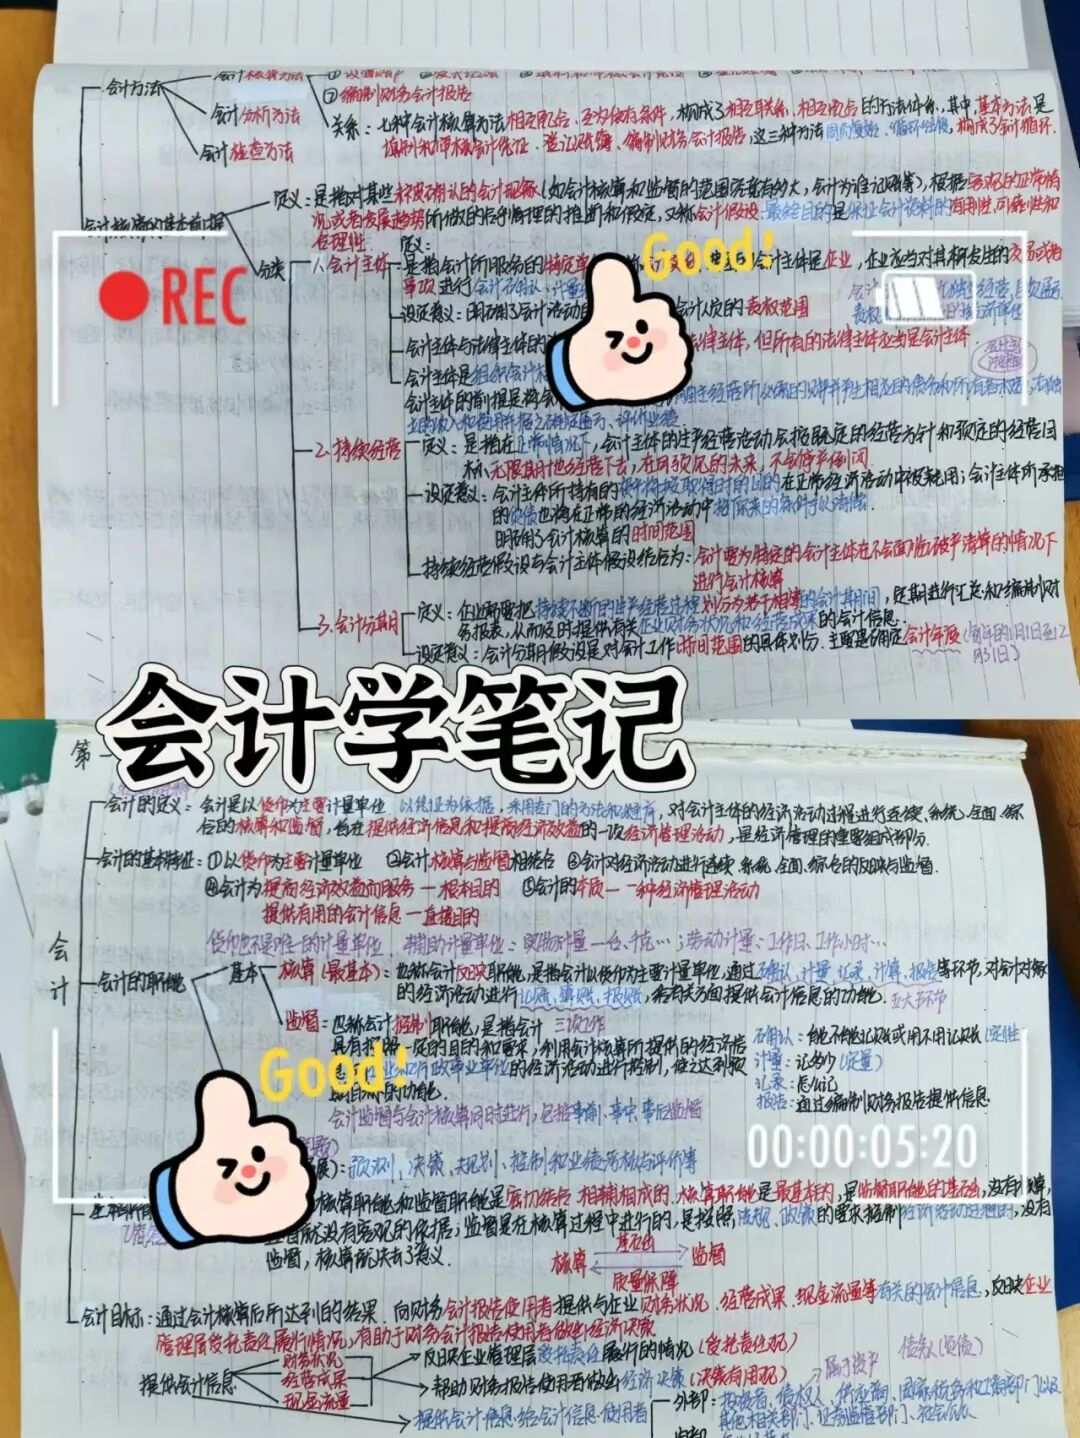 会计方法
会计核算方法
⑦编制财务会计报告
会计分析方法
关系：七种会计核算方法相互配合、互为依存条件，构成了相互联系、相互配合的方法体系，其中，基本方法是
会计检查方法
填制和审核会计凭证、登记账簿、编制财务会计报告，这三种方法周而复始、循环往复，构成了会计循环.
会计核算的基本前提
定义：是指对某些未被确认的会计现象（如会计核算和监督的范围究竟有多大，会计为谁记账等），根据客观的正常情
况或者发展趋势所做的合乎情理的推断和假定，又称会计假设.最终目的是保证会计资料的有用性、可靠性和
合理性.
分类
1.会计主体
定义：
是指会计所服务的特定单
会计主体是企业，企业应当对其所发生的交易或者
事项进行会计确认、计量
REC
Good!
设定意义：明确了会计活动
会计人员的责权范围
会计主体与法律主体的
法律主体，但所有的法律主体应当是会计主体.
会计主体是组织会计
会计主体的前提是将会
2.持续经营
定义：是指在正常情况下，会计主体的生产经营活动会按既定的经营方针和预定的经营目
标无限期地经营下去，在可预见的未来，不会停产倒闭
设定意义：会计主体所持有的资产将按取得时的目的在正常经济活动中被耗用；会计主体所承担
的负债也将在正常的经济活动中按原来的条件予以清偿.
明确了会计核算的时间范围
持续经营假设与会计主体假设结合为：会计要为特定的会计主体在不会面临破产清算的情况下
进行会计核算
3.会计分期
定义：企业需要把持续不断的生产经营过程划分为若干相等的会计期间，定期进行汇总和编制财
务报表，从而及时提供有关企业财务状况和经营成果的会计信息.
设定意义：会计分期假设是对会计工作时间范围的具体划分.主要是确定会计年度（每年的1月1日至12
月31日）
会计学笔记
第一
会计
会计的定义：会计是以货币为主要计量单位，以凭证为依据，采用专门的方法和程序，对会计主体的经济活动过程进行连续、系统、全面、综
合的核算和监督，旨在提供经济信息和提高经济效益的一项经济管理活动，是经济管理的重要组成部分.
会计的基本特征：①以货币为主要计量单位 ②会计核算与监督相结合 ③会计对经济活动进行连续、系统、全面、综合的反映与监督.
④会计为提高经济效益而服务—根本目的 ⑤会计的本质—一种经济管理活动
提供有用的会计信息—直接目的
货币也不是唯一的计量单位，辅助计量单位：实物计量—台、千克…；劳动计量：工作日、工作小时…
会计的职能
基本
核算（最基本）：也称会计反映职能，是指会计以货币为主要计量单位，通过确认、计量、记录、计算、报告等环节，对会计对象
的经济活动进行记账、算账、报账，给有关方面提供会计信息的功能. 五大环节
监督：也称会计控制职能，是指会计 三项工作
具有按照一定的目的和要求，利用会计核算所提供的经济信
企业和行政事业单位的经济活动进行控制，使之达到预
期目标的功能.
确认：能不能记账或用不用记账（定性）
计量：记多少（定量）
记录：怎么记
报告：通过编制财务报告提供信息
Good!
会计监督与会计核算同时进行，包括事前、事中、事后监督
00:00:05:20
展）：预测、决策、规划、控制和业绩考核与评价等
核算职能和监督职能是密切结合、相辅相成的.核算职能是最基本的，是监督职能的基础，没有核算，
监督就没有客观的依据；监督是在核算过程中进行的，是按照法规、政策的要求控制经济活动过程的，没有
监督，核算就失去了意义.
核算
基础
监督
质量保障
会计目标：通过会计核算后所达到的结果.向财务会计报告使用者提供与企业财务状况、经营成果、现金流量等有关的会计信息，反映企业
管理层受托责任履行情况，有助于财务会计报告使用者做出经济决策
提供会计信息
财务状况
经营成果
现金流量
反映企业管理层受托责任履行的情况（受托责任观）
帮助财务报告使用者做出经济决策（决策有用观）
属于资产
债务人（负债）
提供会计信息给会计信息使用者
外部：投资者、债权人、供应商、国家税务和工商部门以及
其他相关部门、证券监管部门、社会公众.
内部